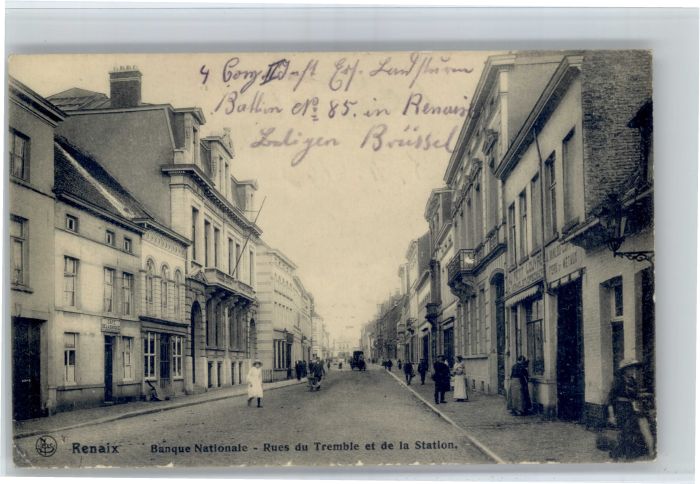 4 Comp Ers. Landsturm
Batllon No. 85. in Renaix
Belgien Brüssel
Renaix Banque Nationale - Rues du Tremble et de la Station.